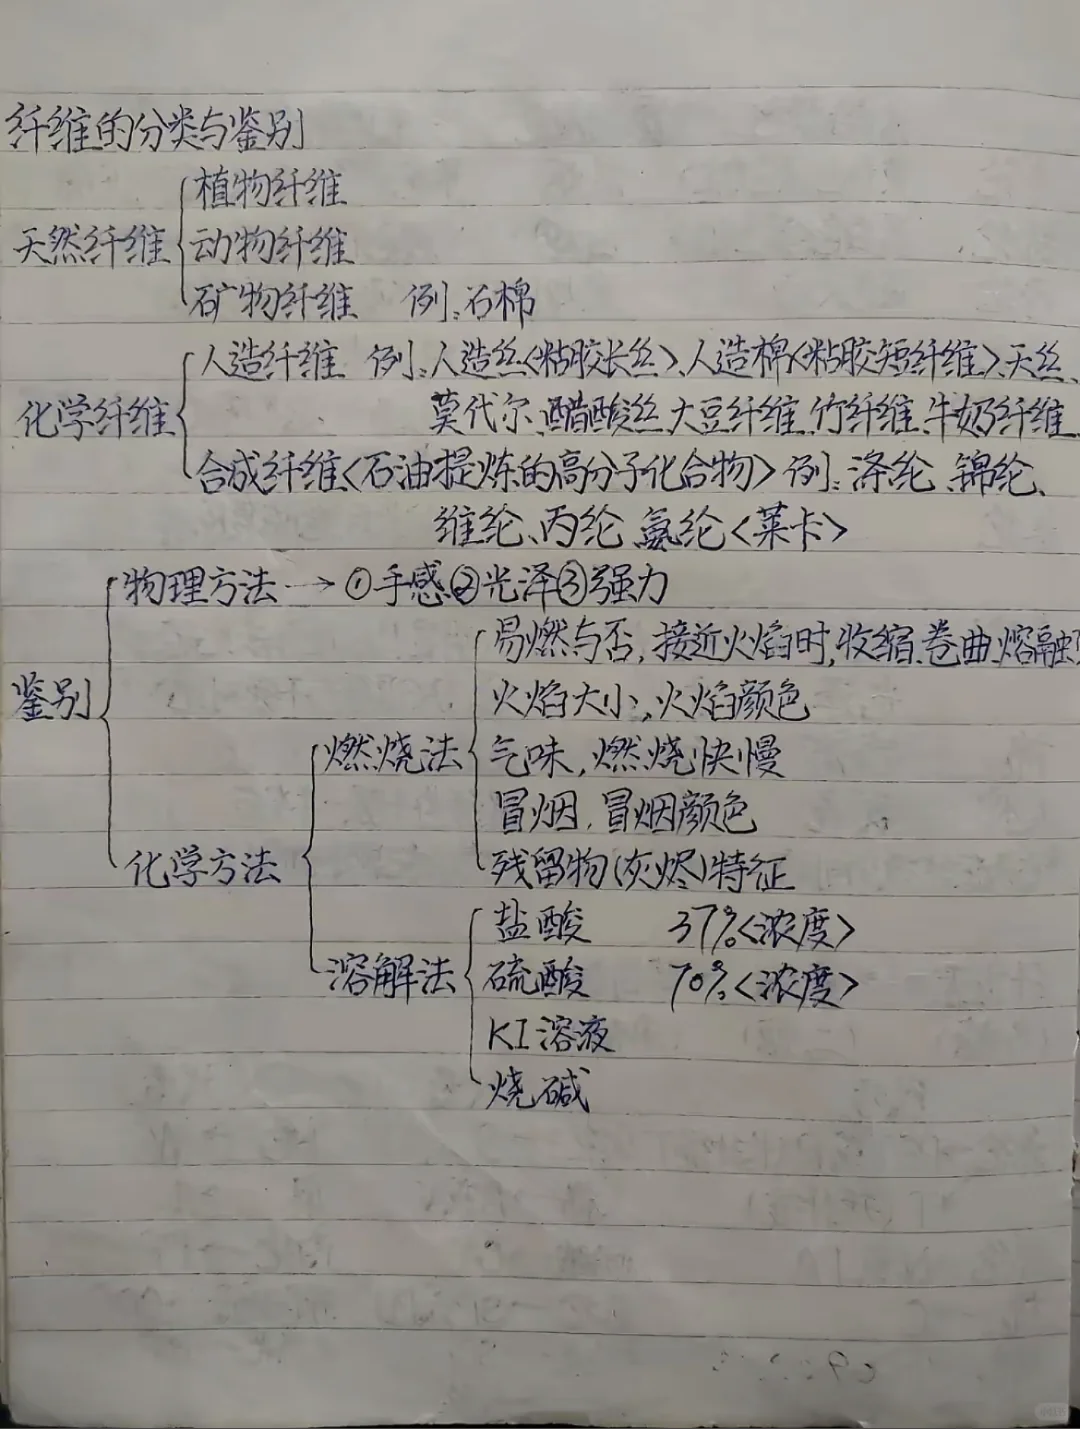 纤维的分类与鉴别
植物纤维
天然纤维 动物纤维
矿物纤维 例:石棉
人造纤维 例:人造丝<粘胶长丝>、人造棉<粘胶短纤维>、天丝、
化学纤维 莫代尔、醋酸丝、大豆纤维、竹纤维、牛奶纤维
合成纤维<石油提炼的高分子化合物> 例:涤纶、锦纶、
维纶、丙纶、氨纶<莱卡>
物理方法 → ①手感②光泽③强力
易燃与否,接近火焰时,收缩、卷曲、熔融
鉴别 火焰大小,火焰颜色
燃烧法 气味,燃烧快慢
冒烟,冒烟颜色
化学方法 残留物(灰烬)特征
盐酸 37%<浓度>
溶解法 硫酸 70%<浓度>
KI溶液
烧碱